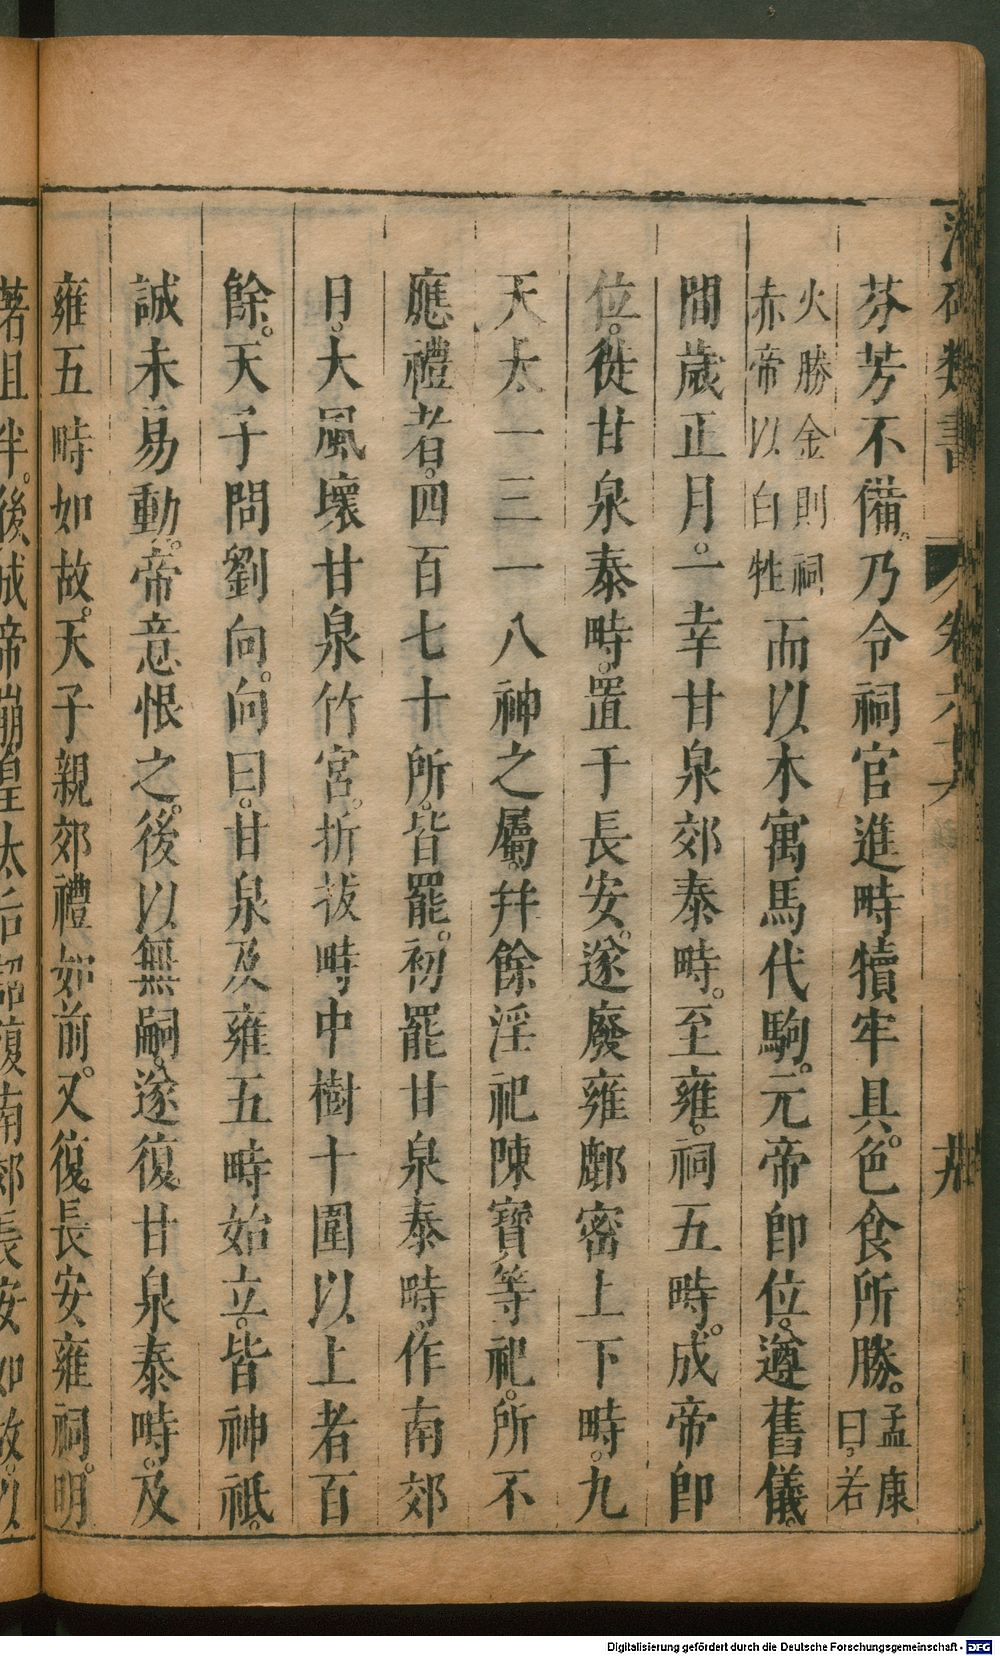 芬芳不備。乃令祠官進畤犢牢具。色食所勝。孟康曰。若
火勝金則祠赤帝以白牲而以木寓馬代駒。元帝即位。遵舊儀。
間歲正月。一幸甘泉郊泰畤。至雍。祠五畤。成帝即
位。從甘泉泰畤。置于長安。遂廢雍鄜密上下畤。九
天太一三一八神之屬。幷餘淫祀陳寶等祀。所不
應禮者。四百七十所。皆罷。初罷甘泉泰畤。作南郊
日。大風壞甘泉竹宮。折拔畤中樹十圍以上者百
餘。天子問劉向。向曰。甘泉及雍五畤始立。皆神祇。
誠未易動。帝意恨之。後以無嗣。遂復甘泉泰畤。及
雍五畤如故。天子親郊禮如前。又復長安雍祠。明
著且半。後成帝崩皇太后詔復南郊長安如故。以
類書 卷六 卅
Digitalisierung gefördert durch die Deutsche Forschungsgemeinschaft - DFG